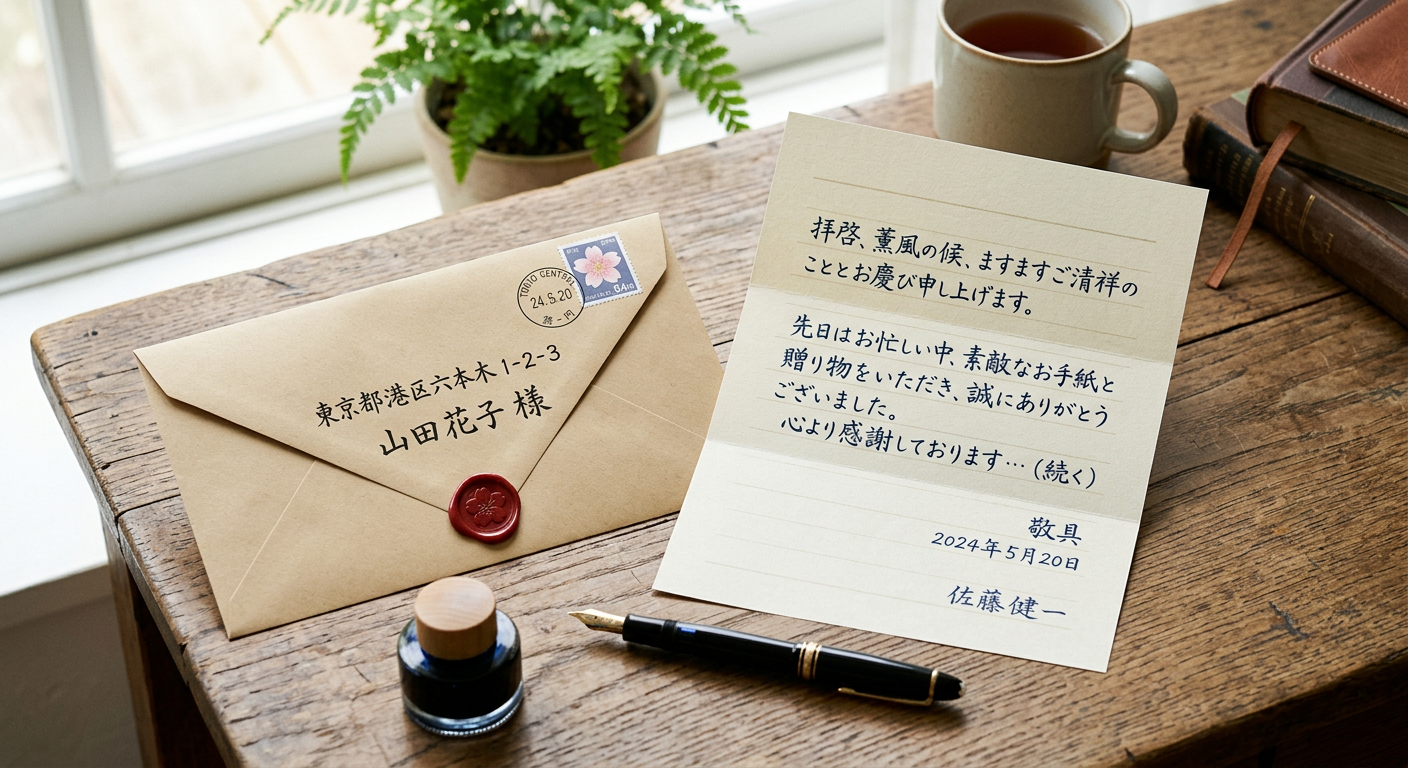 TOKYO CENTRAL
24.5.20
東京都港区六本木1-2-3
山田花子 様
拝啓、薫風の候、ますますご清祥の
こととお慶び申し上げます。
先日はお忙しい中、素敵なお手紙と
贈り物をいただき、誠にありがとう
ございました。
心より感謝しております…（続く）
敬具
2024年5月20日
佐藤健一